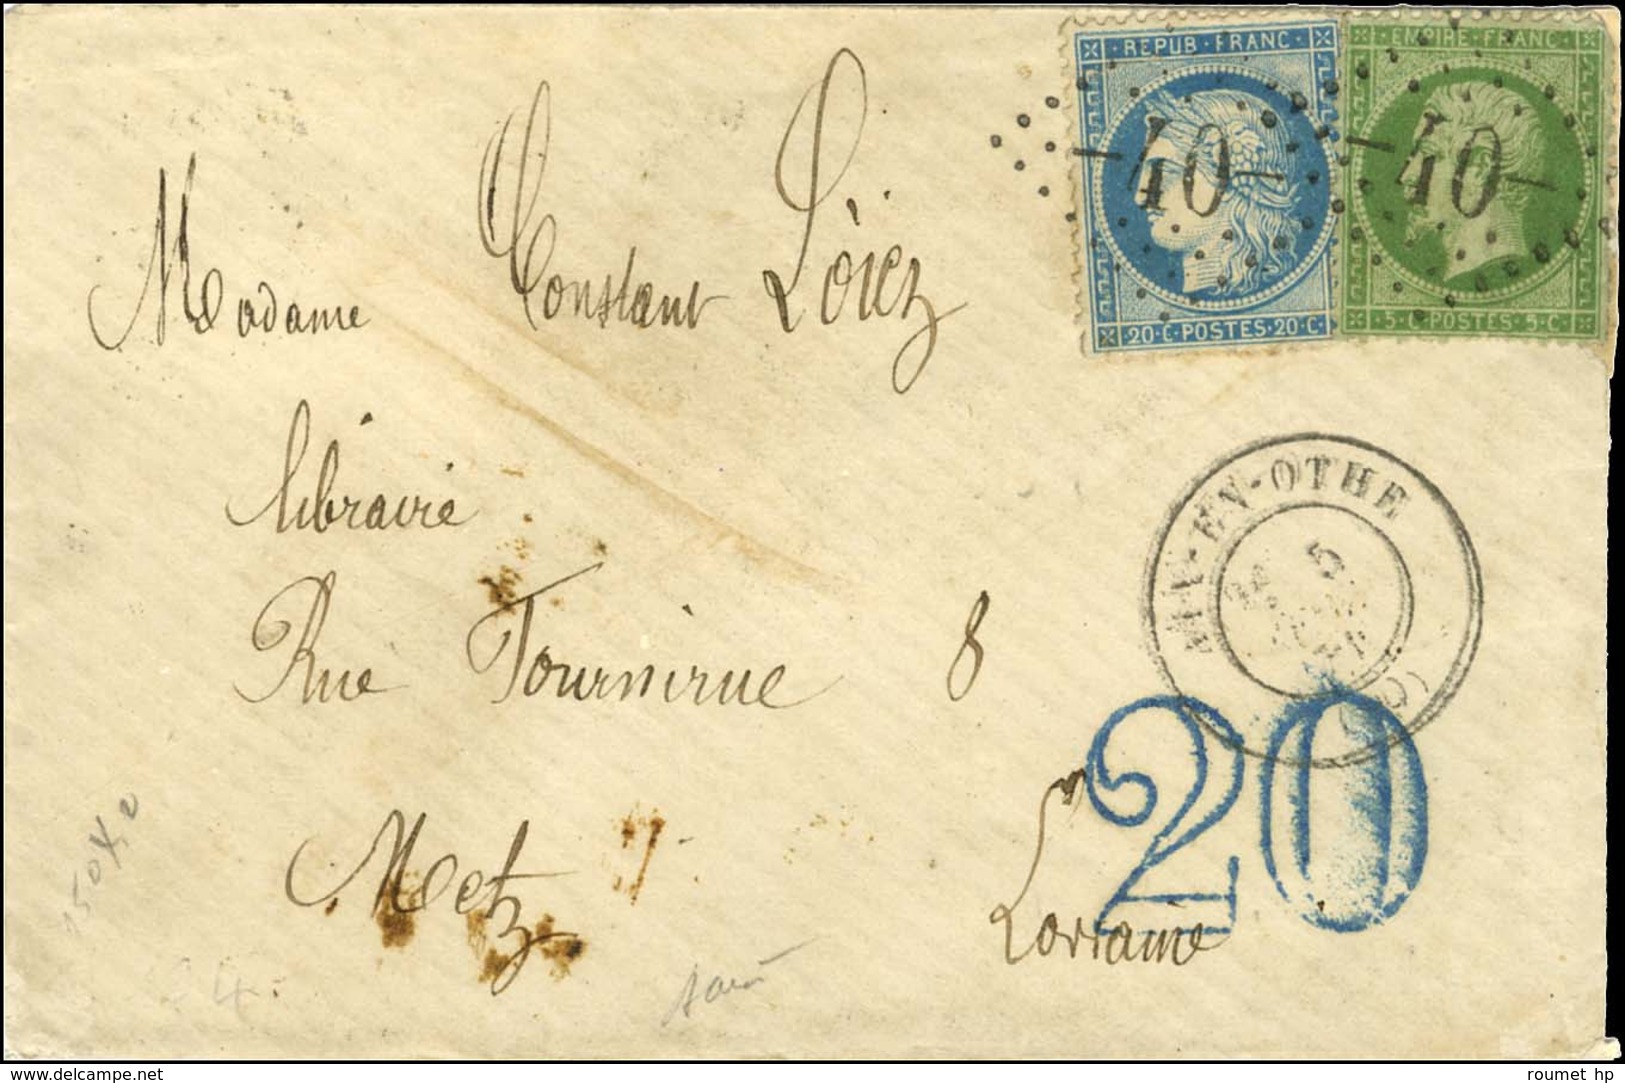 REPUB · FRANC ·
40
20 · C · POSTES · 20 · C ·
· EMPIRE · FRANC ·
40
· 5 · C · POSTES · 5 · C ·
Madame Constant Löiez
librairie
Rue Fournirue 8
Metz
Lorraine
EN-OTHE
5
20
150
4
www.delcampe.net
roumet hp